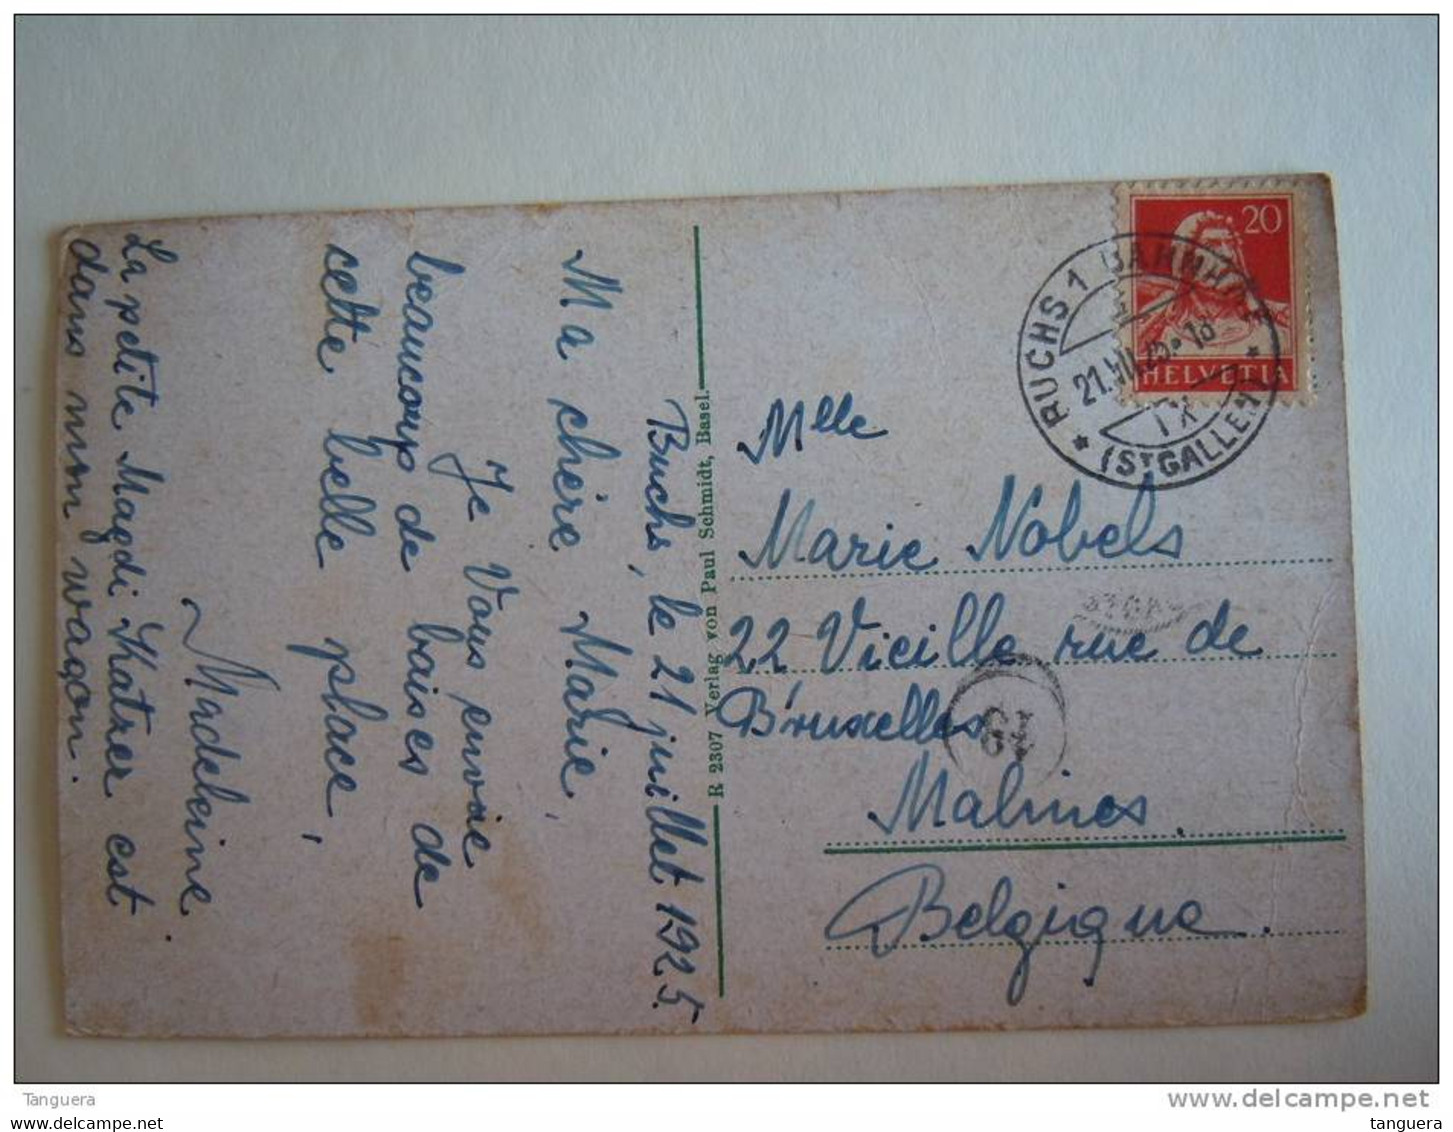 Buchs, le 21 juillet 1925.
Ma chère Marie,
Je Vous envoie
beaucoup de baises de
cette belle place,
Madeleine.
La petite Magdi Skatrer est
dans mon wagon.
R 2307 Verlag von Paul Schmidt, Basel.
20
HELVETIA
BUCHS 1 BAHNHOF
21.VII.25-18
IX
(ST GALLEN)
Mlle
Marie Nobels
22 Vieille rue de
Bruxelles
Malines.
Belgique.
19
Tanguera
delcampe.net
tanguera